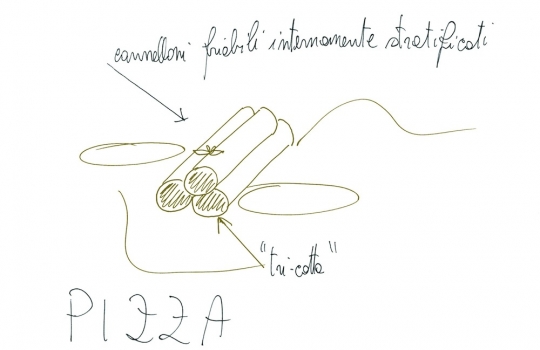 cannelloni friabili internamente stratificati
"tri-cotta"
PIZZA